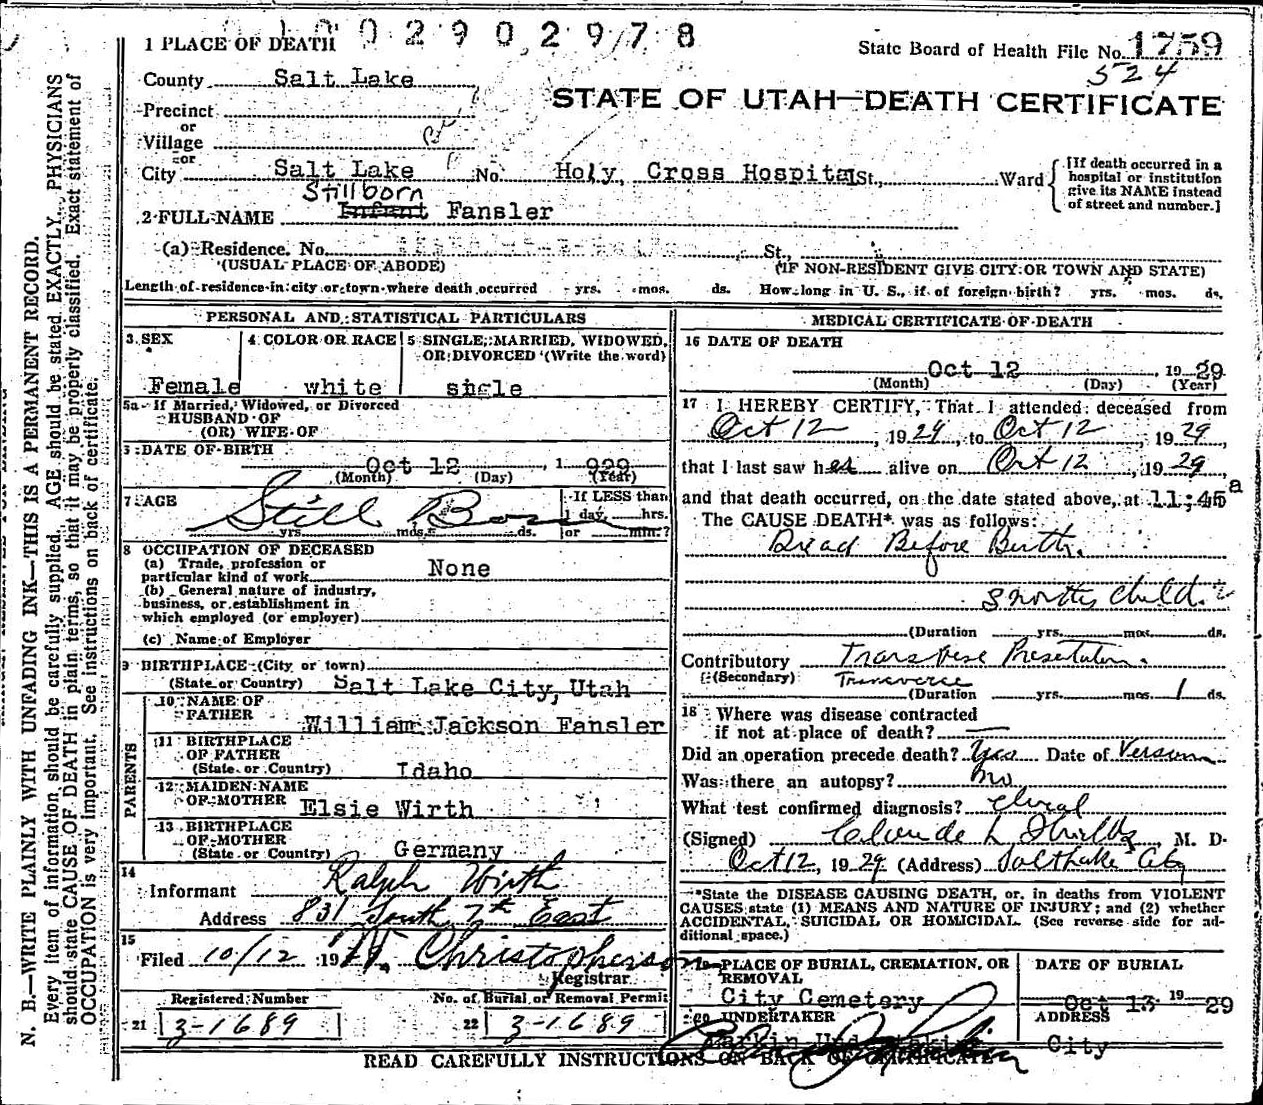 0029029 78
1 PLACE OF DEATH
State Board of Health File No. 1759
524
County Salt Lake
STATE OF UTAH—DEATH CERTIFICATE
Precinct
or
Village
or
City Salt Lake No. Holy Cross Hospital St., Ward
[If death occurred in a
hospital or institution
give its NAME instead
of street and number.]
Stillborn
2 FULL NAME Infant Fansler
(a) Residence. No. St.,
(USUAL PLACE OF ABODE) (IF NON-RESIDENT GIVE CITY OR TOWN AND STATE)
Length of residence in city or town where death occurred yrs. mos. ds. How long in U. S., if of foreign birth? yrs. mos. ds.
PERSONAL AND STATISTICAL PARTICULARS
3 SEX 4 COLOR OR RACE 5 SINGLE, MARRIED, WIDOWED,
OR DIVORCED (Write the word)
Female white sigle
5a If Married, Widowed, or Divorced
HUSBAND OF
(OR) WIFE OF
6 DATE OF BIRTH
Oct 12 , 1 929
(Month) (Day) (Year)
7 AGE Still Born If LESS than
1 day, hrs.
yrs. mos. ds. or min.?
8 OCCUPATION OF DECEASED
(a) Trade, profession or
particular kind of work None
(b) General nature of industry,
business, or establishment in
which employed (or employer)
(c) Name of Employer
9 BIRTHPLACE (City or town)
(State or Country) Salt Lake City, Utah
PARENTS
10 NAME OF
FATHER William Jackson Fansler
11 BIRTHPLACE
OF FATHER
(State or Country) Idaho
12 MAIDEN NAME
OF MOTHER Elsie Wirth
13 BIRTHPLACE
OF MOTHER
(State or Country) Germany
14
Informant Ralph Wirth
Address 831 South 7th East
15
Filed 10/12 1929. Christopherson
Registrar
Registered Number No. of Burial or Removal Permit
21 3-1689 22 3-1689
MEDICAL CERTIFICATE OF DEATH
16 DATE OF DEATH
Oct 12 , 19 29
(Month) (Day) (Year)
17 I HEREBY CERTIFY, That I attended deceased from
Oct 12 , 1929, to Oct 12 , 1929,
that I last saw her alive on Oct 12 , 1929,
and that death occurred, on the date stated above, at 11;45 a
The CAUSE DEATH* was as follows:
Dread Before Birth.
child.
(Duration yrs. mos. ds.
Contributory Transvese Presentation.
(Secondary) Transverse
(Duration yrs. mos. 1 ds.
18 Where was disease contracted
if not at place of death?
Did an operation precede death? Yes Date of Version
Was there an autopsy? no
What test confirmed diagnosis?
(Signed) Claude L M. D.
Oct 12, 1929 (Address) Salt Lake City
*State the DISEASE CAUSING DEATH, or, in deaths from VIOLENT
CAUSES state (1) MEANS AND NATURE OF INJURY; and (2) whether
ACCIDENTAL, SUICIDAL OR HOMICIDAL. (See reverse side for ad-
ditional space.)
19 PLACE OF BURIAL, CREMATION, OR
REMOVAL
City Cemetery
DATE OF BURIAL
Oct 13 19 29
20 UNDERTAKER
ADDRESS
City
READ CAREFULLY INSTRUCTIONS ON BACK OF CERTIFICATE
N. B.—WRITE PLAINLY WITH UNFADING INK—THIS IS A PERMANENT RECORD.
Every item of information should be carefully supplied. AGE should be stated EXACTLY. PHYSICIANS
should state CAUSE OF DEATH in plain terms, so that it may be properly classified. Exact statement of
OCCUPATION is very important. See instructions on back of certificate.